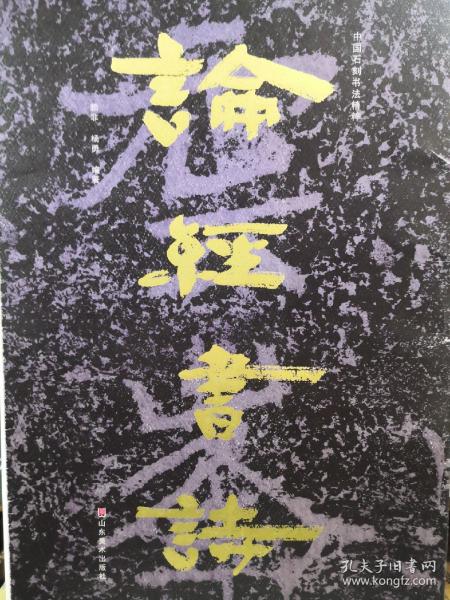 論經書詩
中国石刻书法精粹
山东美术出版社
孔夫子旧书网
www.kongfz.com